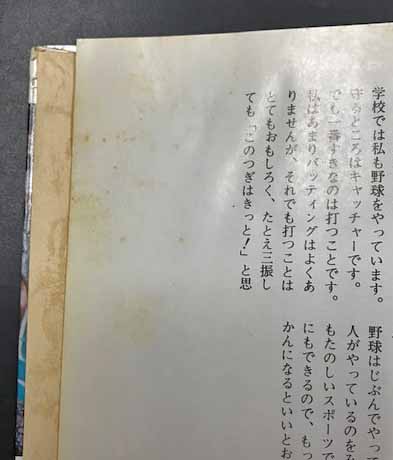 学校では私も野球をやっています。
守るところはキャッチャーです。
でも一番すきなのは打つことです。
私はあまりバッティングはよくあ
りませんが、それでも打つことは
とてもおもしろく、たとえ三振し
ても「このつぎはきっと!」と思
野球はじぶんでやって
人がやっているのをみ
もたのしいスポーツで
にもできるので、もっ
かんになるといいとお